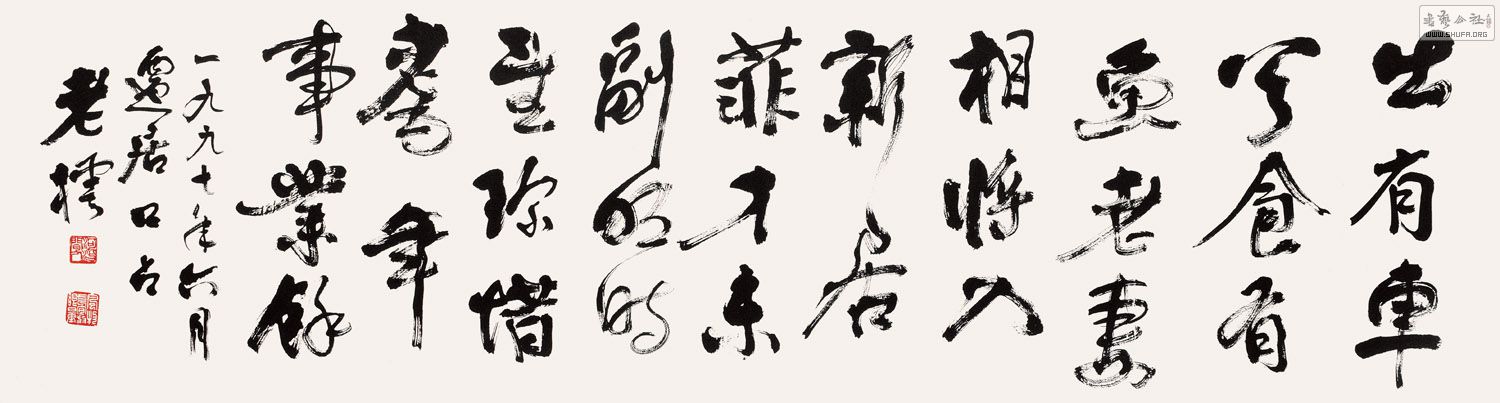 出有車
兮食有
魚老妻
相將入
新居
菲才未
副明時
望珍惜
年
事業餘
一九九七年六月
遷居口占
老樗
书艺公社
WWW.SHUFA.ORG